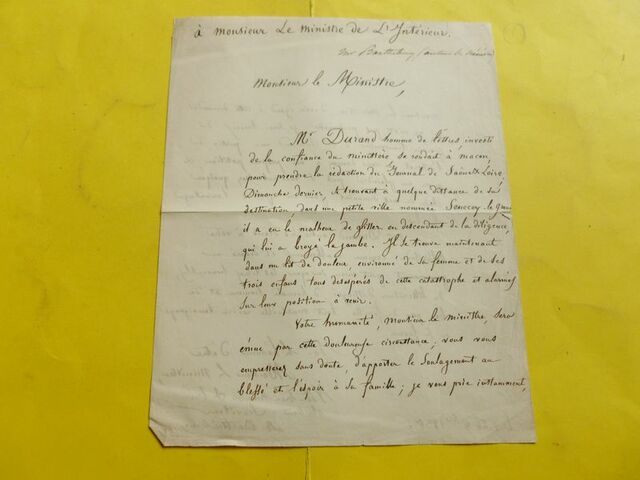 à Monsieur Le Ministre de L'Intérieur.
mr Barthelemy (auteur de Némésis)
Monsieur le Ministre,
Mr Durand homme de lettres, investi
de la confiance du ministère se rendait à macon,
pour prendre la rédaction du Journal de Saone & Loire.
Dimanche dernier, se trouvant à quelque distance de sa
destination, dans une petite ville nommée Senecey le grand
il a eu le malheur de glisser en descendant de la diligence,
qui lui a broyé la jambe. Il se trouve maintenant
dans un lit de douleur environné de sa femme et de ses
trois enfans tous désespérés de cette catastrophe et alarmés
sur leur position à venir.
Votre humanité, monsieur le ministre, sera
émue par cette douloureuse circonstance; vous vous
empresserez sans doute, d'apporter le soulagement au
blessé et l'espoir à sa famille; je vous prie instamment,